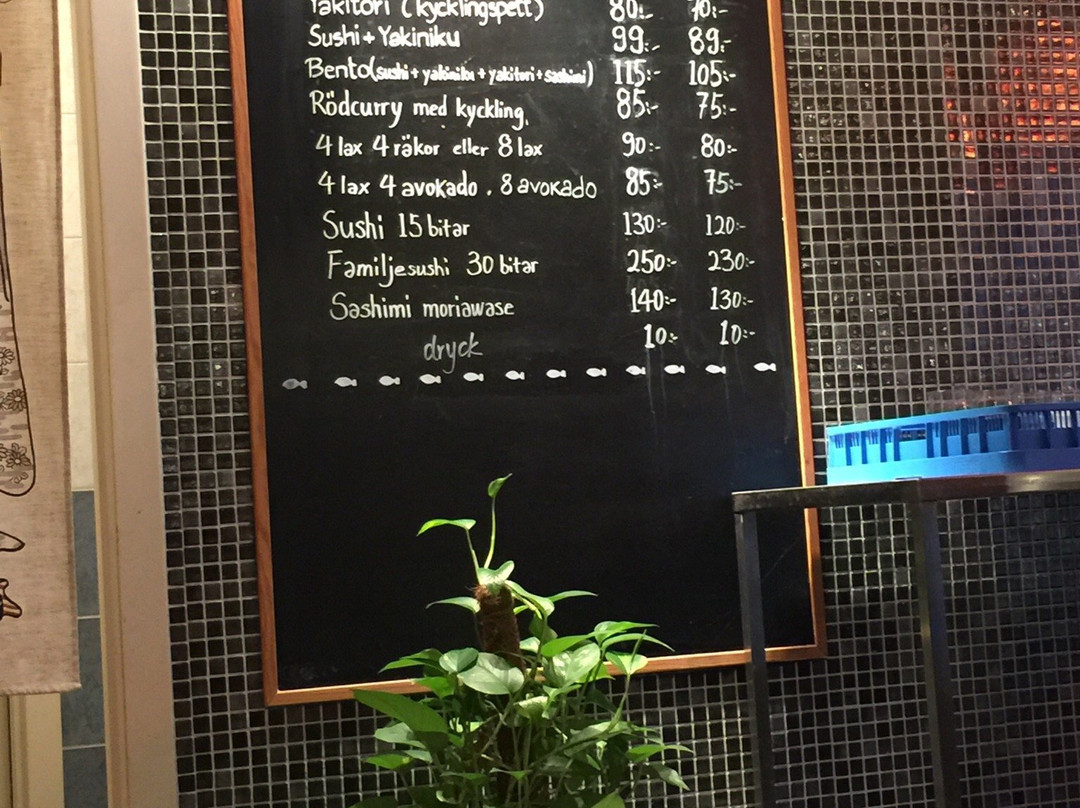 Yakitori (kycklingspett) 80:- 70:-
Sushi + Yakiniku 99:- 89:-
Bento(sushi + yakiniku + yakitori + sashimi) 115:- 105:-
Rödcurry med kyckling. 85:- 75:-
4 lax 4 räkor eller 8 lax 90:- 80:-
4 lax 4 avokado . 8 avokado 85:- 75:-
Sushi 15 bitar 130:- 120:-
Familjesushi 30 bitar 250:- 230:-
Sashimi moriawase 140:- 130:-
dryck 10:- 10:-